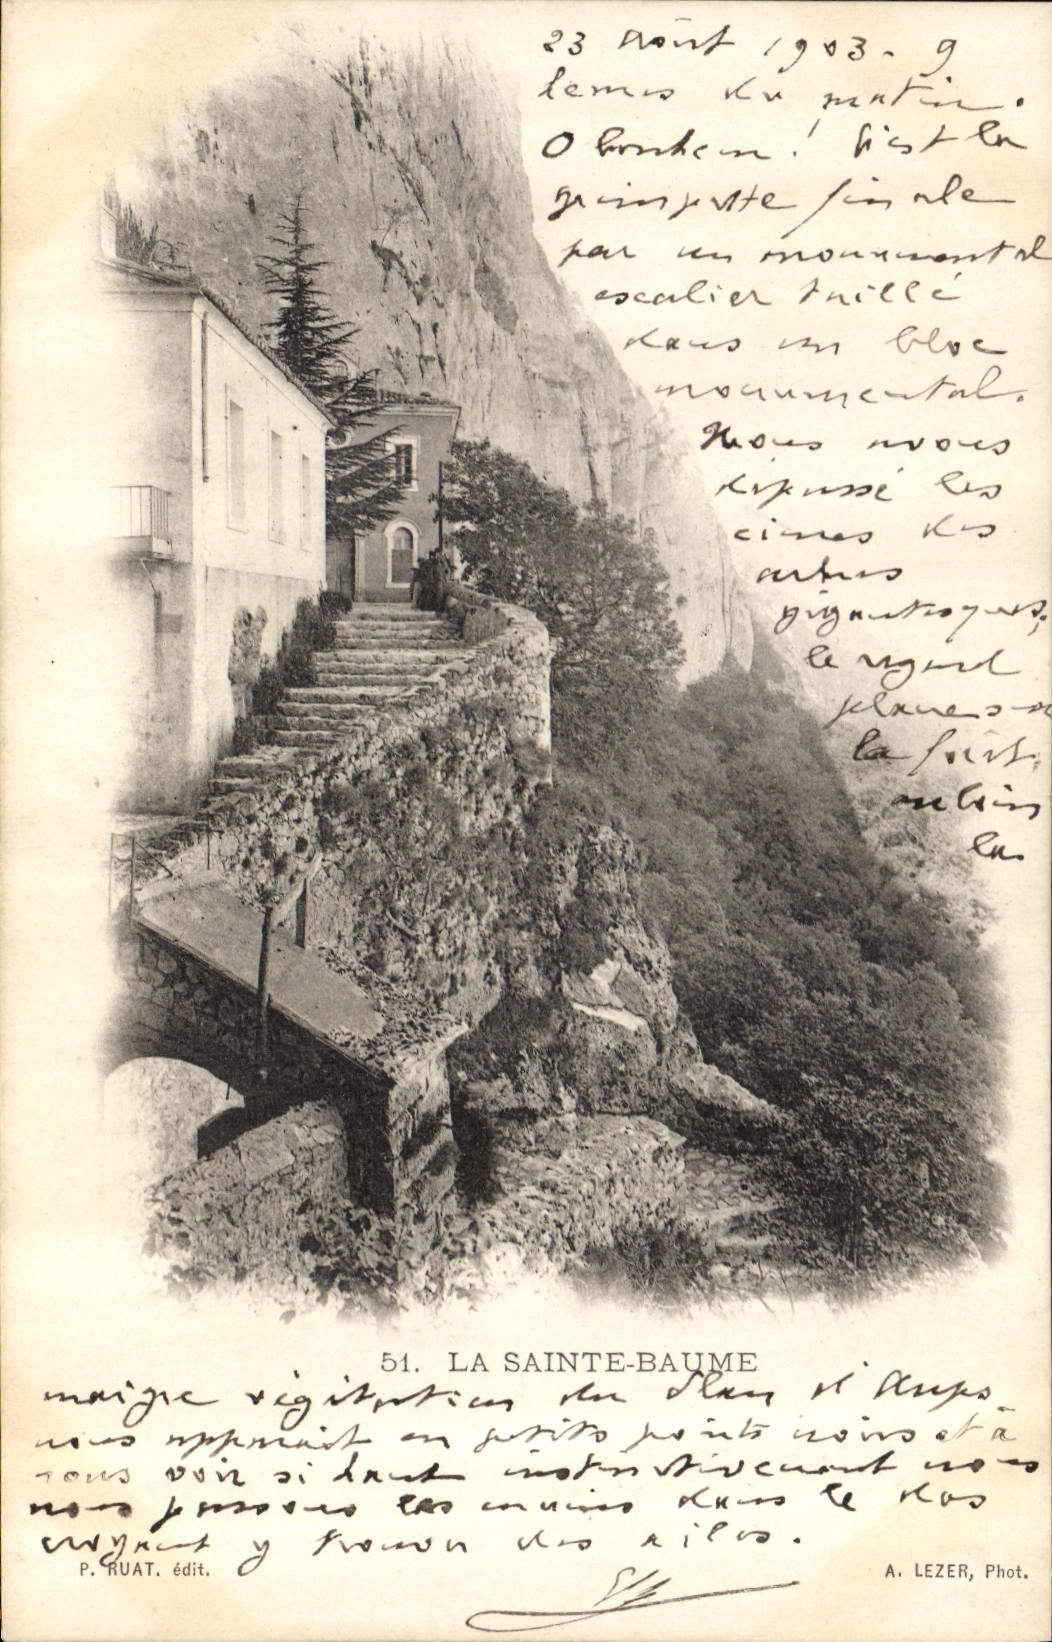 23 Août 1903 - 9
heures du matin.
O bonheur ! C'est la
grimpette finale
par un monumental
escalier taillé
dans un bloc
monumental.
Nous avons
dépassé les
cimes des
arbres
gigantesques,
le regard
plane sur
la forêt,
au loin
la
51. LA SAINTE-BAUME
maigre végétation du Plan d'Aups
nous apparait en petits points noirs et à
nous voir si haut instinctivement nous
nous passons les mains dans le dos
croyant y trouver des ailes.
P. RUAT. édit.
A. LEZER, Phot.